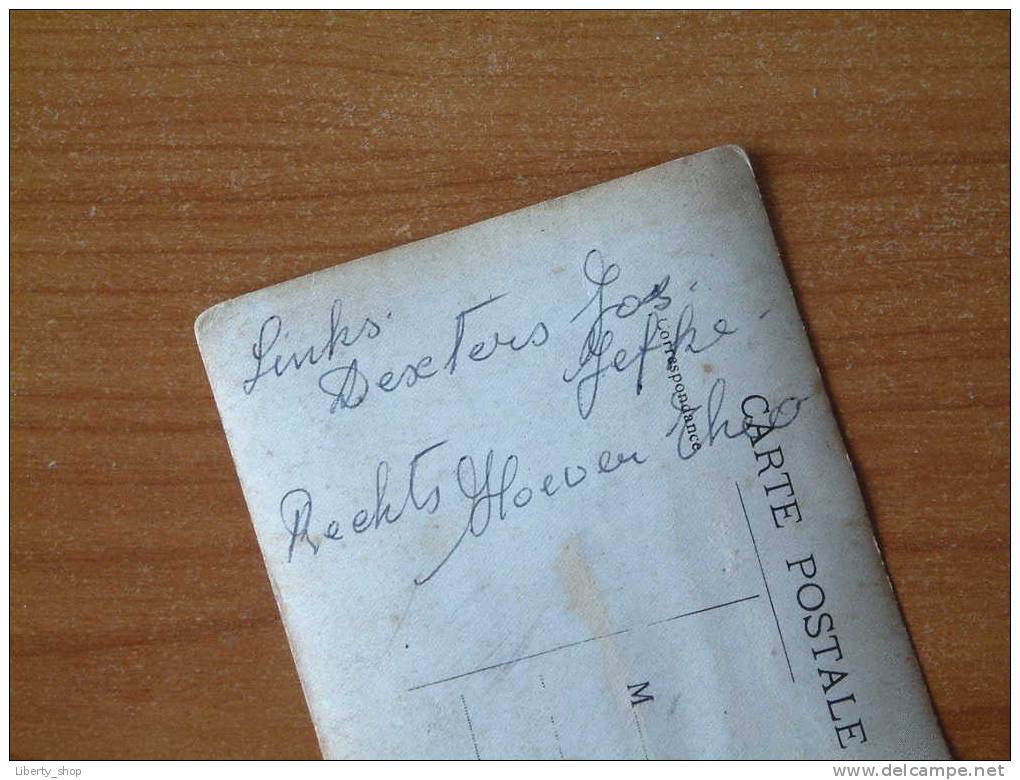 Links.
Dexters Jos.
Jefke.
Rechts Hoeven Theo
Correspondance
CARTE POSTALE
M
Liberty_shop
www.delcampe.net